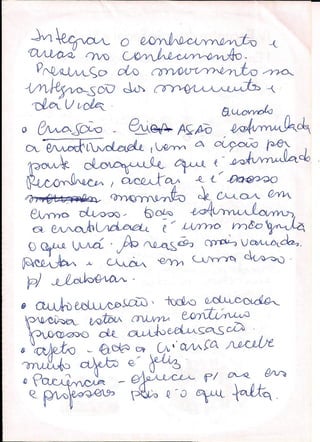 Integrar o conhecimento e
areas no conhecimento.
Presença do movimento na
integração dos momentos e
da vida.
Quando
• Criação - AÇÃO estimulada
a criatividade, vem a ação por
parte daquele que é estimulado
Reconhecer, aceitar e é
momento de criar em
cima disso. estimulamos
a criatividade é uma incógnita
o que virá. As reações mais variadas.
Aceitar e criar em cima disso.
p/ elaborar.
• autoeducação. todo educador
precisa estar num contínuo
processo de autoeducação.
• afeto - a criança recebe
muito afeto é feliz.
• Paciência - oferecer p/ as
e professores pois é o que falta.